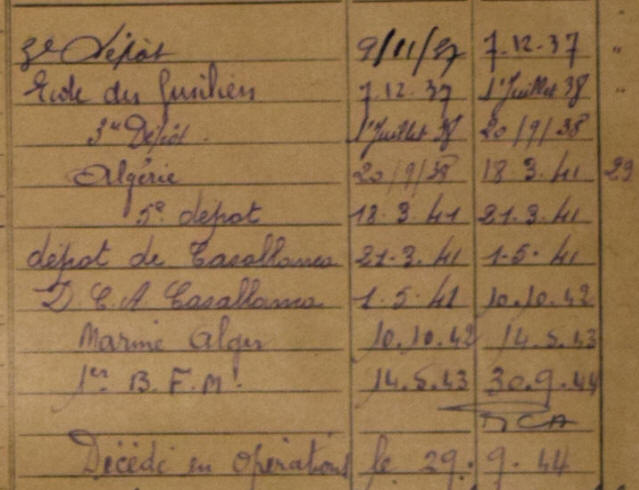 3e Dépôt 9/11/37 7.12.37 "
Ecole des fusiliers 7.12.37 1er Juillet 38 "
3me Dépôt. 1er Juillet 38 20/9/38
Algérie 20/9/38 18.3.41 29
5e dépot 18.3.41 21.3.41
dépot de Casablanca 21.3.41 1.5.41
D.C.A Casablanca 1.5.41 10.10.42
Marine Alger 10.10.42 14.5.43
1er B.F.M. 14.5.43 30.9.44
Décédé en opérations le 29. 9.44